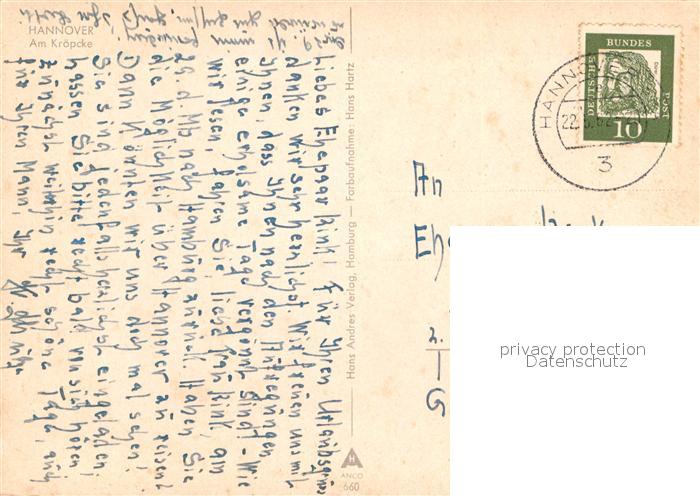 HANNOVER
Am Kröpcke
Liebes Ehepaar Kink! Für Ihren Urlaubsgruss
danken wir sehr herzlichst. Wir freuen uns mit
Ihnen, dass Ihnen nach den Aufregungen
einige erholsame Tage vergönnt sind. - Wie
wir lesen, fahren Sie, liebe Frau Kink, am
29. d. Mts nach Hamburg zurück. Haben Sie
die Möglichkeit über Hannover zu reisen?
Dann könnten wir uns doch mal sehen!
Sie sind jedenfalls herzlichst eingeladen!
Lassen Sie bitte recht bald von sich hören!
Zunächst weiterhin recht schöne Tage, auch
für Ihren Mann, Ihr
Hans Andres Verlag, Hamburg — Farbaufnahme: Hans Hartz
ANCO
660
DEUTSCHE
BUNDES
POST
10
HANNOVER
22.
3
An
privacy protection
Datenschutz